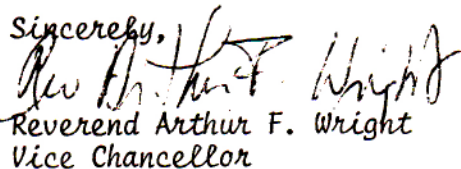 Sincerely,
Rev Arthur F. Wright
Reverend Arthur F. Wright
Vice Chancellor